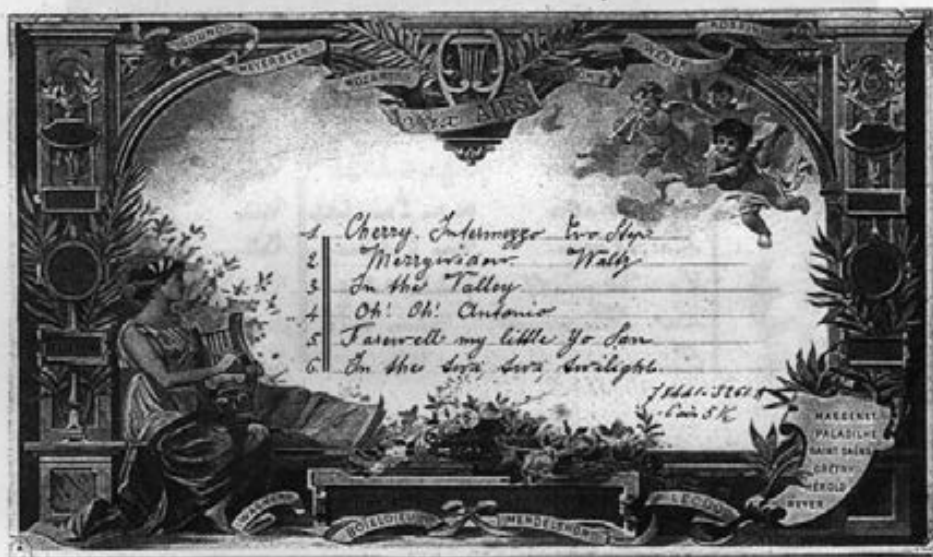 GOUNOD
MEYERBEER
MOZART
WEBER
ROSSINI
AIRS
1 Cherry. Intermezzo Two Step
2 Merrywidow Waltz
3 In the Valley
4 Oh! Oh! Antonio
5 Farewell my little Yo San
6 In the twa, twa, twilight.
MASSENET
PALADILHE
SAINT SAËNS
GRÉTRY
HÉROLD
REYER
WAGNER
BOIELDIEU
MENDELSHON
LECOQ